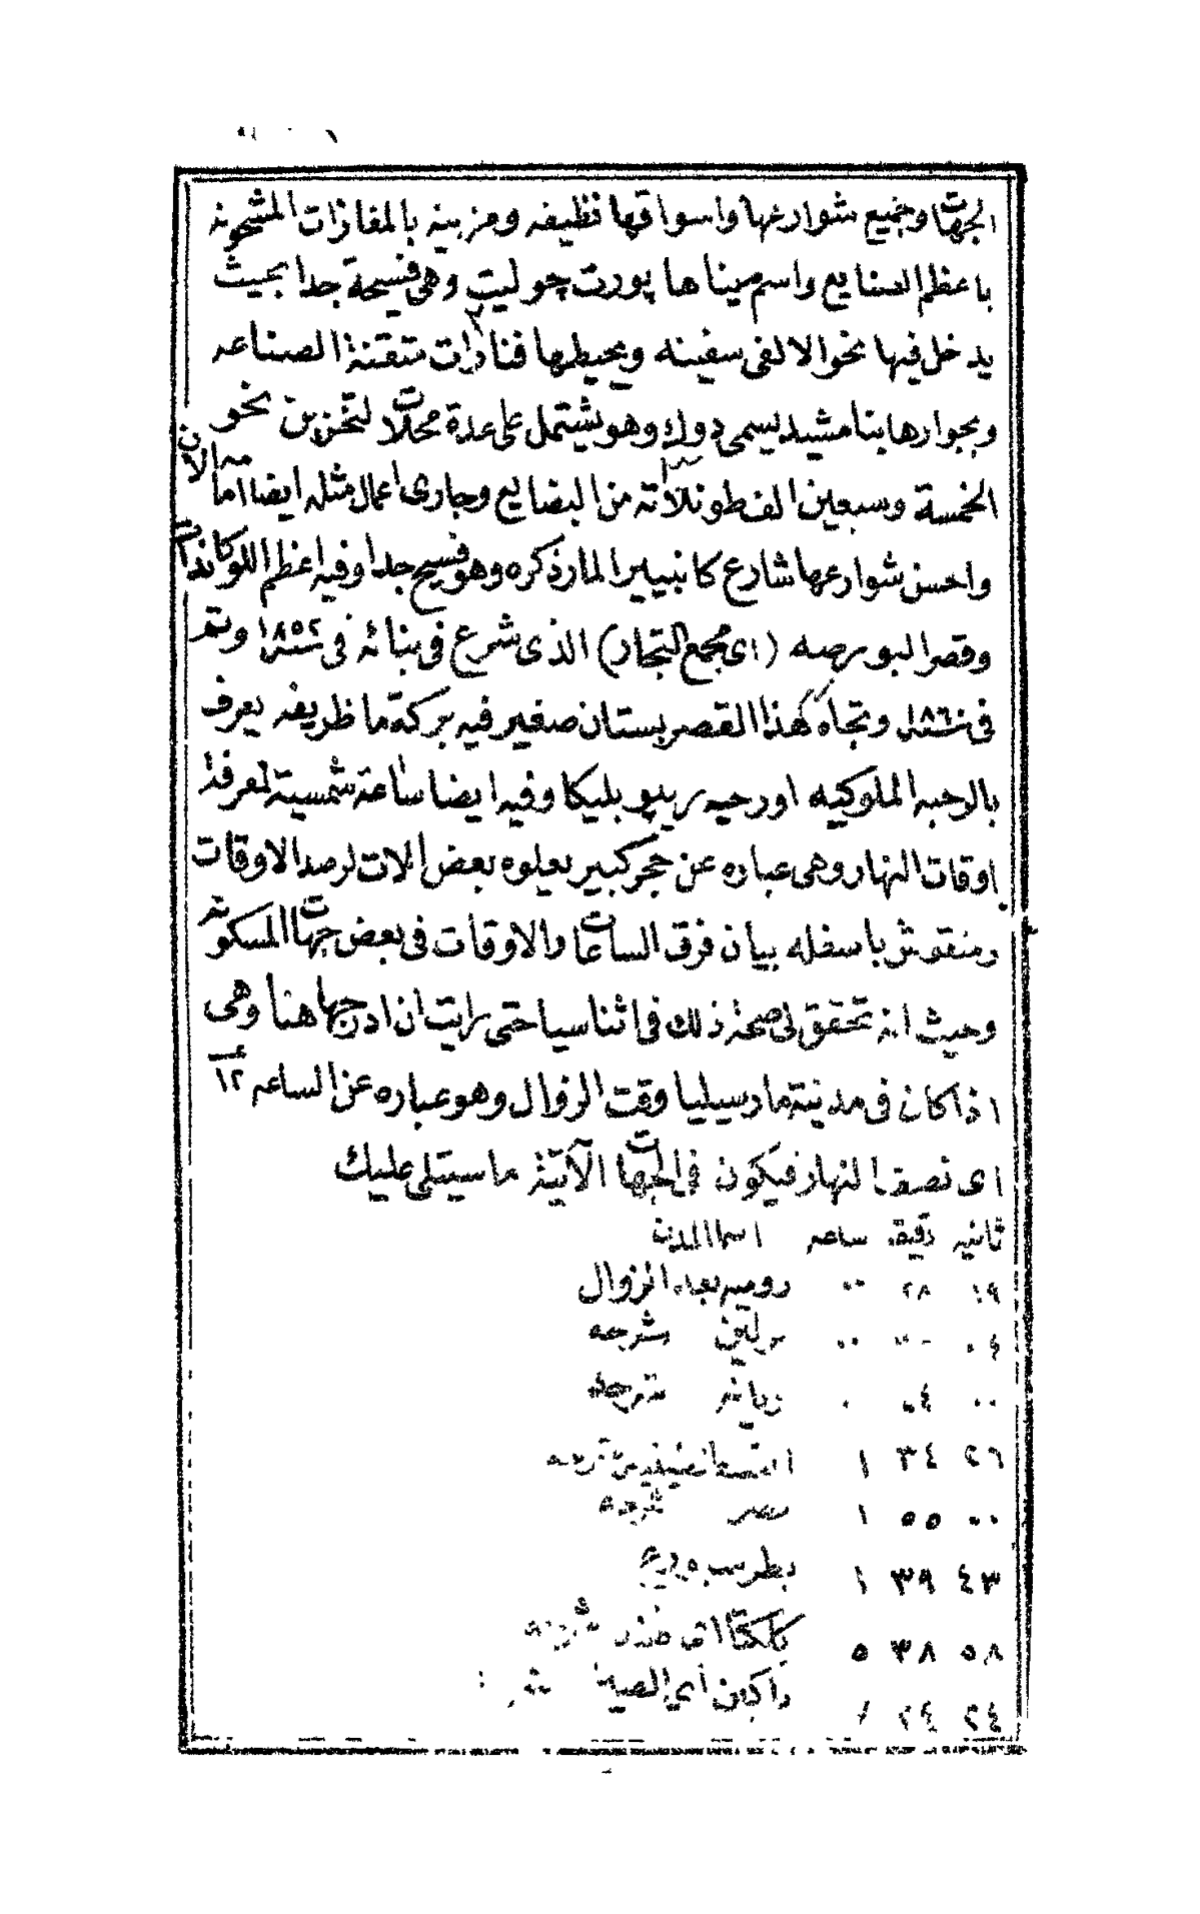 الجهات وجميع شوارعها واسواقها نظيفه ومزينه بالمغازات المشحونه
باعظم الصنايع واسم ميناها پورت چوليت وهى فسيحة جدا بحيث
يدخل فيها نحو الالفى سفينه ويحيط بها فنارات متقنة الصناعه
وبجوارها بنا مشيد يسمى دوك وهو يشتمل على عدة محلات لتخزين نحو
الخمسة وسبعين الف طونلاته من البضايع وجارى اعمال مثله ايضا اما الان
واحسن شوارعها شارع كانبيير المار ذكره وهو فسيح جدا وفيه اعظم اللوكاندات
وقصر البورصه (اى مجمع التجار) الذى شرع فى بنائه فى سنة ١٨٥٢ وتم
فى سنة ١٨٦٠ وتجاه هذا القصر بستان صغير فيه بركة ما ظريفه يعرف
بالرحبه الملوكيه او رحبه ريپو بليكا وفيه ايضا ساعة شمسية لمعرفة
اوقات النهار وهى عباره عن حجر كبير يعلوه بعض الات لرصد الاوقات
ومنقوش باسفله بيان فرق الساعات والاوقات فى بعض جهات المسكونه
وحيث انه تحقق لى صحة ذلك فى اثنا سياحتى رايت ان ادرجها هنا وهى
اذا كان فى مدينة مارسيليا وقت الزوال وهو عباره عن الساعه ١٢
اى نصف النهار فيكون فى الجهات الآتية ما سيتلى عليك
ثانيه دقيقه ساعه اسما المدن
١٩ ٢٨ ٠٠ روميه بعد الزوال
٠٠ برلين شرحه
٠٠ ٤٠ ٠ شرحه
٢٦ ٣٤ ١
٠٠ ٥٥ ١ مصر شرحه
٤٣ ٣٩ ١ بطرسبورغ
٥٨ ٣٨ ٥ كلكتا اى
٢٤ ٢٤ اى الصين